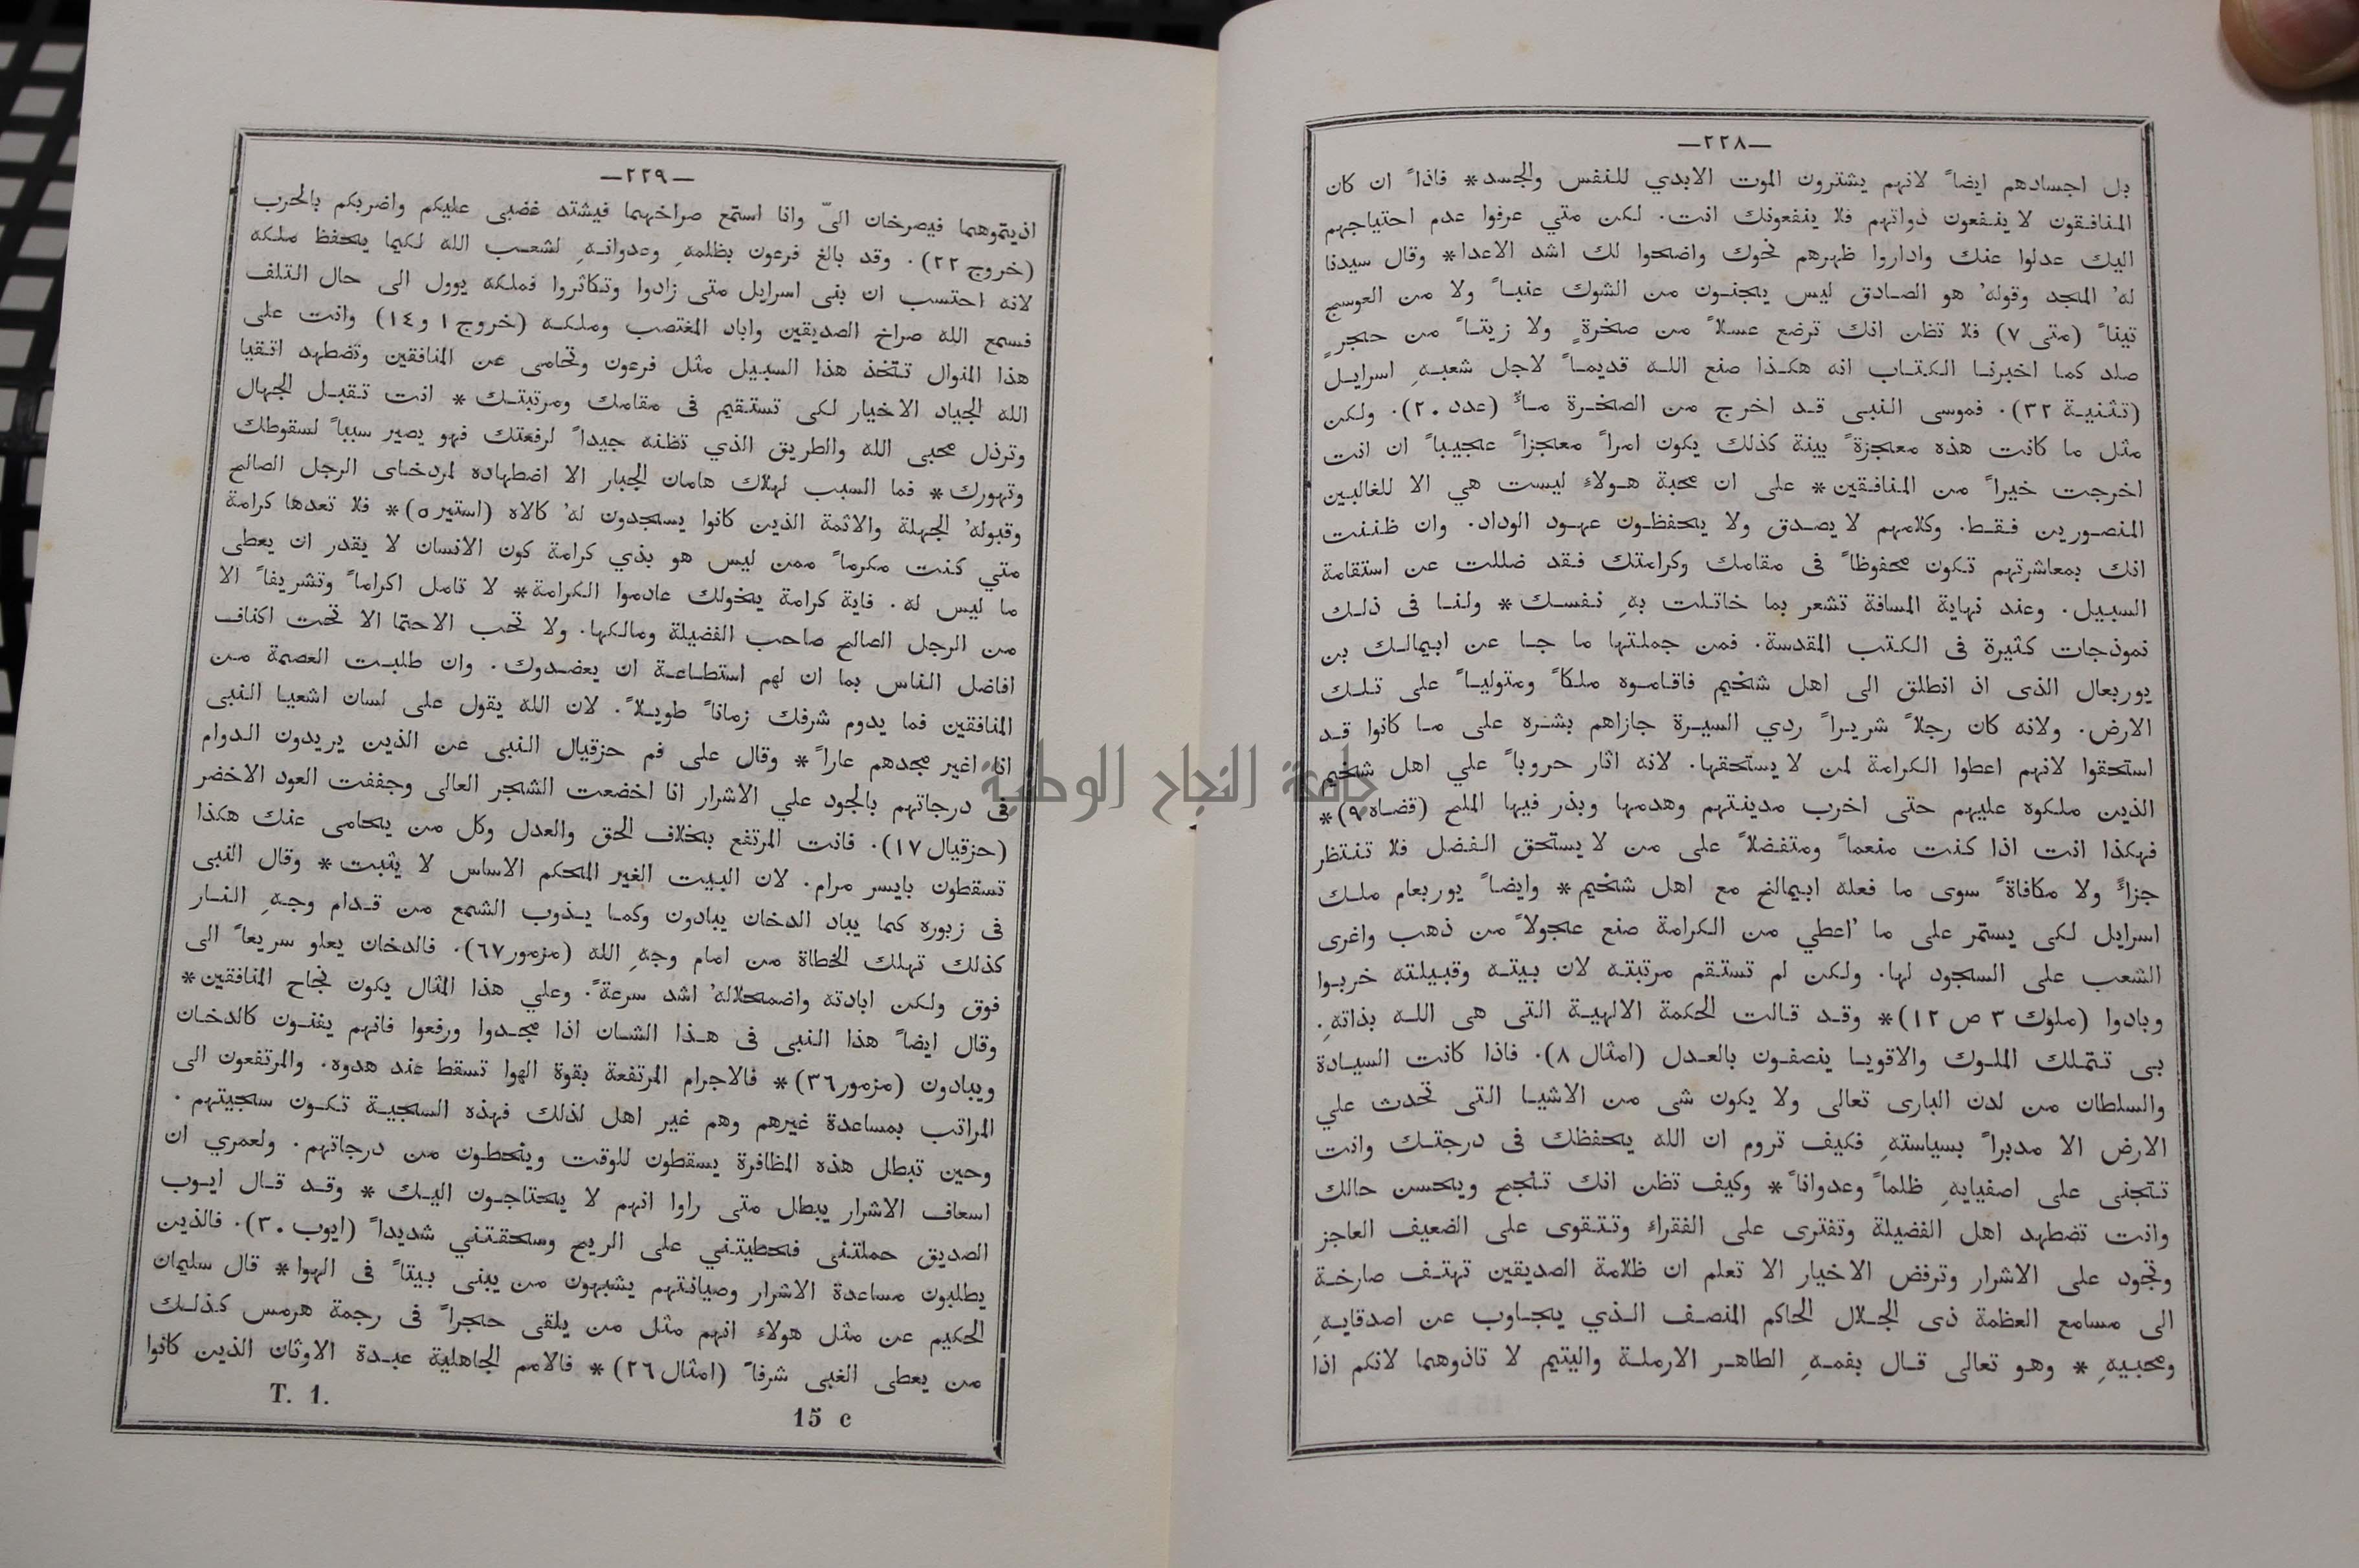 —٢٢٨—
بل اجسادهم ايضاً لانهم يشترون الموت الابدي للنفس والجسد* فاذاً ان كان
المنافقون لا ينفعون ذواتهم فلا ينفعونك انت. لكن متي عرفوا عدم احتياجهم
اليك عدلوا عنك واداروا ظهرهم نحوك واضحوا لك اشد الاعدا* وقال سيدنا
له' المجد وقوله' هو الصادق ليس يجنون من الشوك عنباً ولا من العوسج
تيناً (متى ٧) فلا تظن انك ترضع عسلاً من صخرةٍ ولا زيتاً من حجرٍ
صلد كما اخبرنا الكتاب انه هكذا صنع الله قديماً لاجل شعبهِ اسرايل
(تثنية ٣٢). فموسى النبى قد اخرج من الصخرة ماءً (عدد ٢٠). ولكن
مثل ما كانت هذه معجزةً بينة كذلك يكون امراً معجزاً عجيباً ان انت
اخرجت خيراً من المنافقين* على ان محبة هولاء ليست هي الا للغالبين
المنصورين فقط. وكلامهم لا يصدق ولا يحفظون عهود الوداد. وان ظننت
انك بمعاشرتهم تكون محفوظاً فى مقامك وكرامتك فقد ضللت عن استقامة
السبيل. وعند نهاية المسافة تشعر بما خاتلت بهِ نفسك* ولنا فى ذلك
نموذجات كثيرة فى الكتب المقدسة. فمن جملتها ما جا عن ابيمالك بن
يوربعال الذى اذ انطلق الى اهل شخيم فاقاموه ملكاً ومتولياً على تلك
الارض. ولانه كان رجلاً شريراً ردي السيرة جازاهم بشره على ما كانوا قد
استحقوا لانهم اعطوا الكرامة لمن لا يستحقها. لانه اثار حروباً علي اهل شخيم
الذين ملكوه عليهم حتى اخرب مدينتهم وهدمها وبذر فيها الملح (قضاه ٩)*
فهكذا انت اذا كنت منعماً ومتفضلاً على من لا يستحق الفضل فلا تنتظر
جزاءً ولا مكافاةً سوى ما فعله ابيمالخ مع اهل شخيم* وايضاً يوربعام ملك
اسرايل لكى يستمر على ما اُعطي من الكرامة صنع عجولاً من ذهب واغرى
الشعب على السجود لها. ولكن لم تستقم مرتبته لان بيته وقبيلته خربوا
وبادوا (ملوك ٣ ص ١٢)* وقد قالت الحكمة الالهية التى هى الله بذاتهِ.
بى تتملك الملوك والاقويا ينصفون بالعدل (امثال ٨). فاذا كانت السيادة
والسلطان من لدن البارى تعالى ولا يكون شى من الاشيا التى تحدث علي
الارض الا مدبراً بسياستهِ فكيف تروم ان الله يحفظك فى درجتك وانت
تتجنى على اصفيايهِ ظلماً وعدواناً* وكيف تظن انك تنجح ويحسن حالك
وانت تضطهد اهل الفضيلة وتفترى على الفقراء وتتقوى على الضعيف العاجز
وتجود على الاشرار وترفض الاخيار الا تعلم ان ظلامة الصديقين تهتف صارخة
الى مسامع العظمة ذى الجلال الحاكم المنصف الذي يجاوب عن اصدقايهِ
ومحبيهِ * وهو تعالى قال بفمهِ الطاهر الارملة واليتيم لا تاذوهما لانكم اذا
—٢٢٩—
اذيتموهما فيصرخان اليّ وانا استمع صراخهما فيشتد غضبى عليكم واضربكم بالحرب
(خروج ٢٢). وقد بالغ فرعون بظلمهِ وعدوانهِ لشعب الله لكيما يحفظ ملكه
لانه احتسب ان بنى اسرايل متى زادوا وتكاثروا فملكه يوول الى حال التلف
فسمع الله صراخ الصديقين واباد المغتصب وملكه (خروج ١ و١٤) وانت على
هذا المنوال تتخذ هذا السبيل مثل فرعون وتحامى عن المنافقين وتضطهد اتقيا
الله الجياد الاخيار لكى تستقيم فى مقامك ومرتبتك* انت تقبل الجهال
وترذل محبى الله والطريق الذي تظنه جيداً لرفعتك فهو يصير سبباً لسقوطك
وتهورك* فما السبب لهلاك هامان الجبار الا اضطهاده لمردخاى الرجل الصالح
وقبوله' الجهلة والاثمة الذين كانوا يسجدون له' كالاه (استير ٥)* فلا تعدها كرامة
متي كنت مكرماً ممن ليس هو بذي كرامة كون الانسان لا يقدر ان يعطى
ما ليس له. فاية كرامة يخولك عادموا الكرامة* لا تامل اكراماً وتشريفاً الا
من الرجل الصالح صاحب الفضيلة ومالكها. ولا تحب الاحتما الا تحت اكناف
افاضل الناس بما ان لهم استطاعة ان يعضدوك. وان طلبت العصمة من
المنافقين فما يدوم شرفك زماناً طويلاً. لان الله يقول على لسان اشعيا النبى
انا اغير مجدهم عاراً* وقال على فم حزقيال النبى عن الذين يريدون الدوام
فى درجاتهم بالجود علي الاشرار انا اخضعت الشجر العالى وجففت العود الاخضر
(حزقيال ١٧). فانت المرتفع بخلاف الحق والعدل وكل من يحامى عنك هكذا
تسقطون بايسر مرام. لان البيت الغير المحكم الاساس لا يثبت* وقال النبى
فى زبوره كما يباد الدخان يبادون وكما يذوب الشمع من قدام وجهِ النار
كذلك تهلك الخطاة من امام وجهِ الله (مزمور ٦٧). فالدخان يعلو سريعاً الى
فوق ولكن ابادته واضمحلاله' اشد سرعةً. وعلي هذا المثال يكون نجاح المنافقين*
وقال ايضاً هذا النبى فى هذا الشان اذا مجدوا ورفعوا فانهم يفنون كالدخان
ويبادون (مزمور ٣٦)* فالاجرام المرتفعة بقوة الهوا تسقط عند هدوه. والمرتفعون الى
المراتب بمساعدة غيرهم وهم غير اهل لذلك فهذه السجية تكون سجيتهم.
وحين تبطل هذه المظافرة يسقطون للوقت وينحطون من درجاتهم. ولعمري ان
اسعاف الاشرار يبطل متى راوا انهم لا يحتاجون اليك* وقد قال ايوب
الصديق حملتنى فحطيتني على الريح وسحقتني شديداً (ايوب ٣٠). فالذين
يطلبون مساعدة الاشرار وصيانتهم يشبهون من يبنى بيتاً فى الهوا* قال سليمان
الحكيم عن مثل هولاء انهم مثل من يلقى حجراً فى رجمة هرمس كذلك
من يعطى الغبى شرفاً (امثال ٢٦)* فالامم الجاهلية عبدة الاوثان الذين كانوا
T. 1.
15 c
جامعة النجاح الوطنية